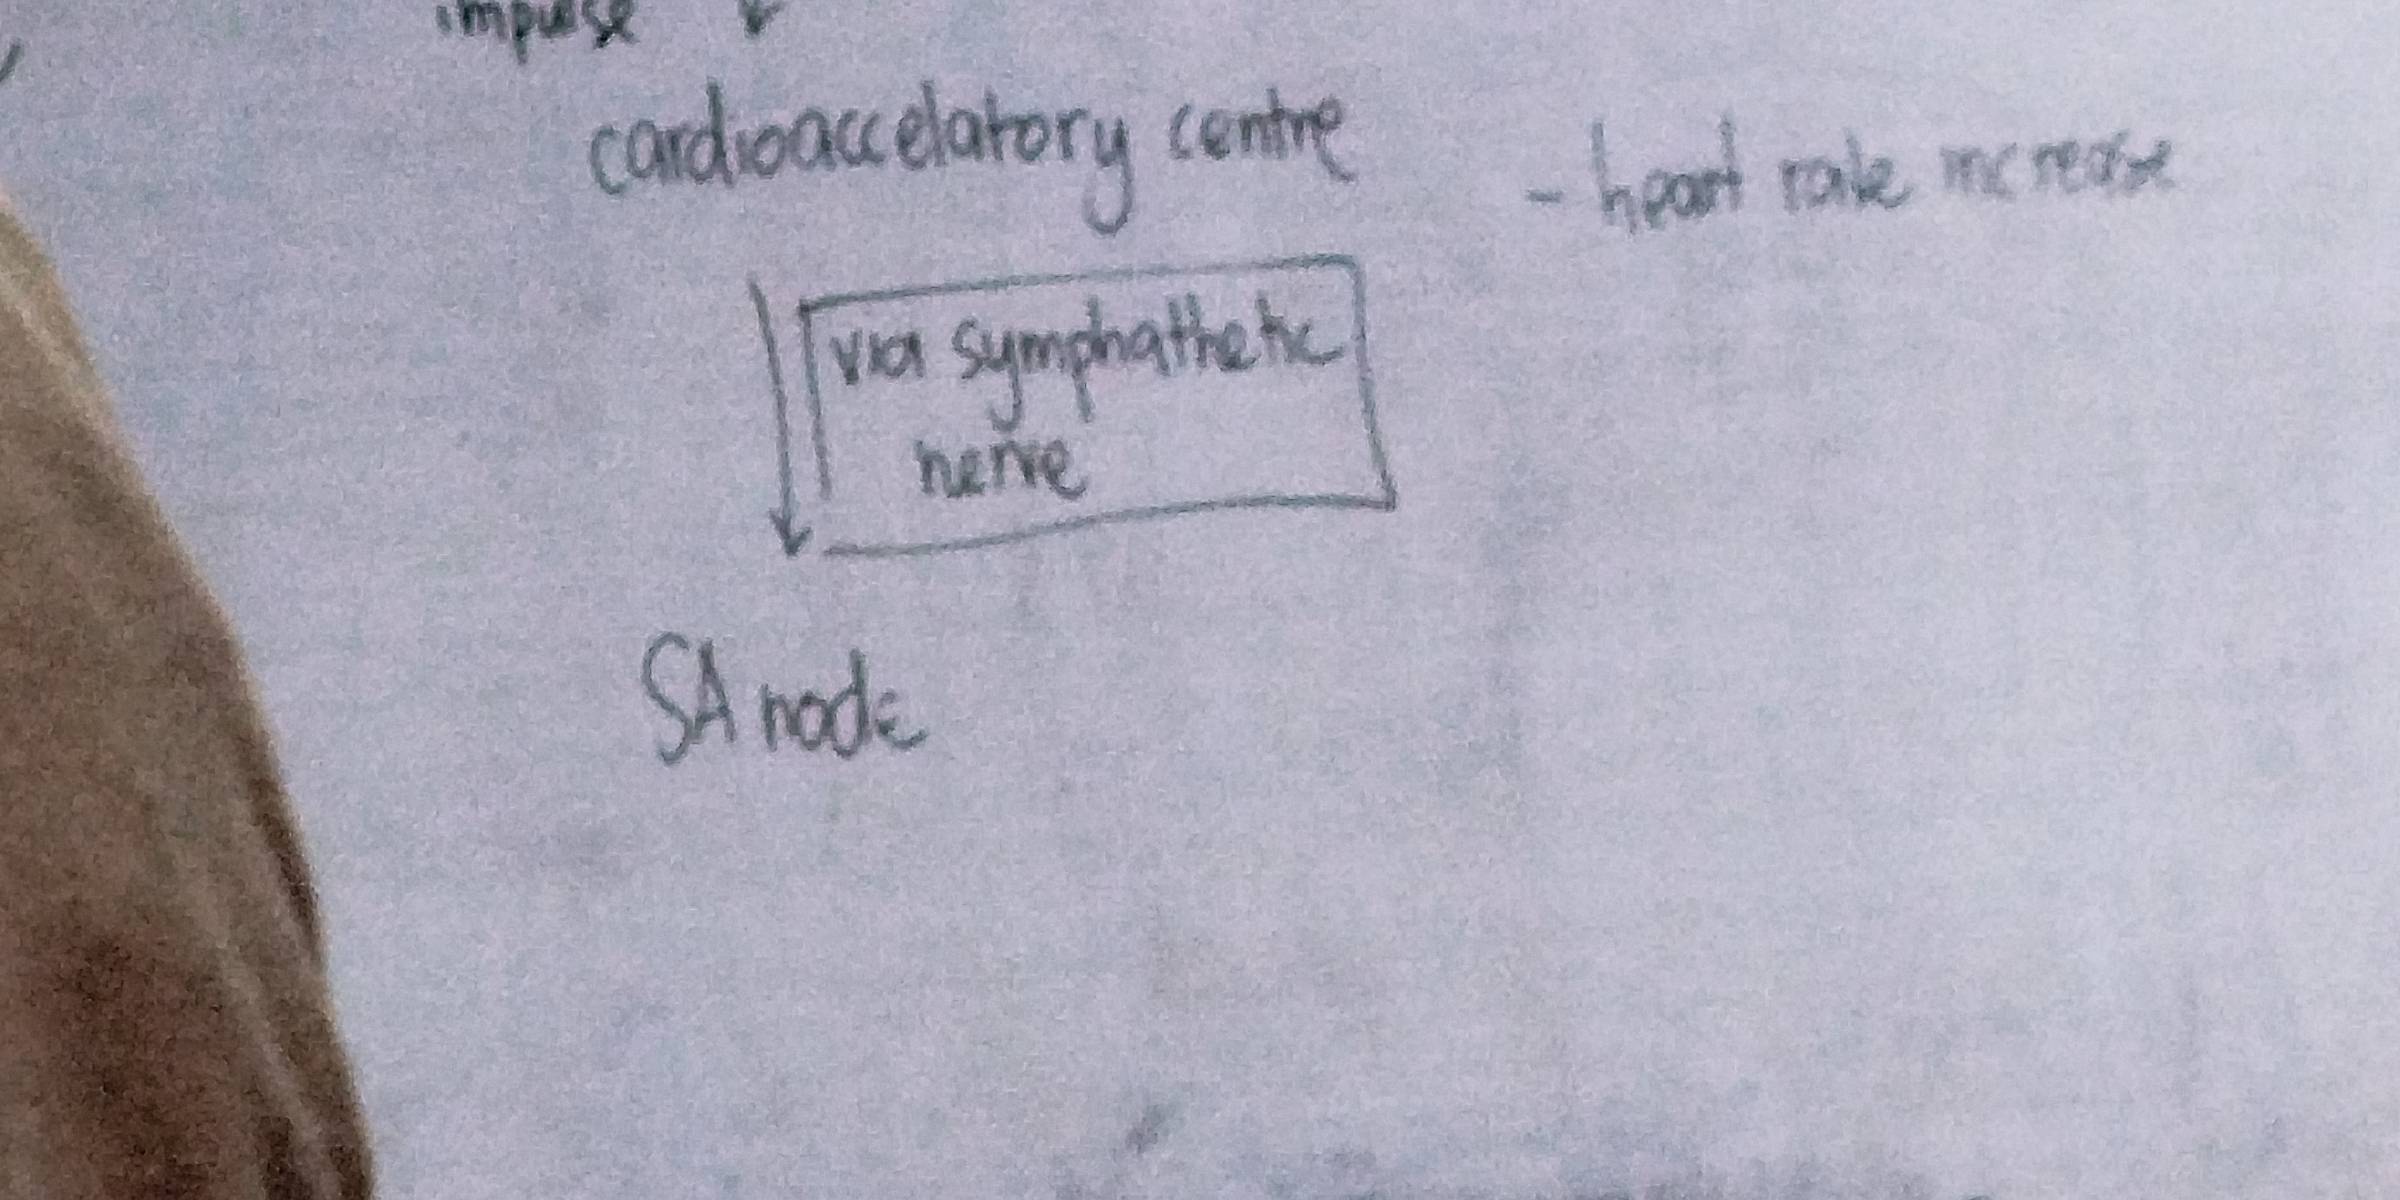 impulse
cardioaccelatory centre
- heart rate increase
via symphathetic
nerve
SA node